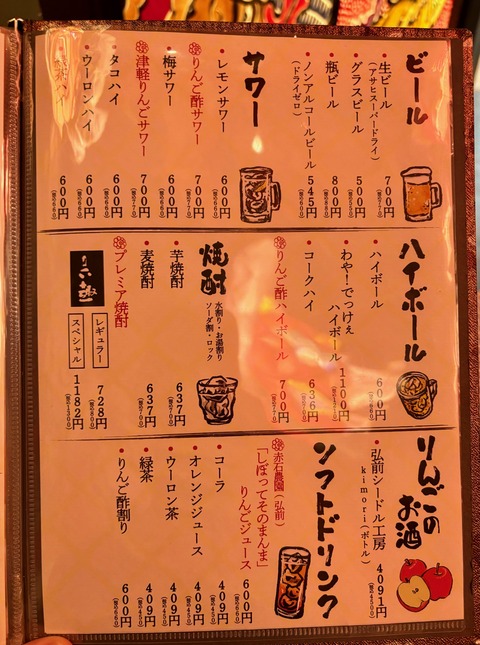 ビール
・生ビール
(アサヒスーパードライ)
700円
(税込770)
・グラスビール
500円
・瓶ビール
・ノンアルコールビール
(ドライゼロ)
545円
サワー
・レモンサワー
600円
(税込660)
りんご酢サワー
700円
(税込770)
・梅サワー
600円
(税込660)
津軽りんごサワー
700円
(税込770)
・タコハイ
600円
(税込660)
・ウーロンハイ
600円
(税込660)
・緑茶ハイ
600円
(税込660)
ハイボール
・ハイボール
600円
・わや!でっけぇ
ハイボール
1100円
・コークハイ
636円
(税込700)
りんご酢ハイボール
700円
(税込770)
焼酎
水割り・お湯割り
ソーダ割・ロック
・芋焼酎
637円
(税込700)
・麦焼酎
637円
(税込700)
プレミア焼酎
レギュラー
728円
(税込800)
スペシャル
1182円
(税込1300)
りんごの
お酒
・弘前シードル工房
kimori(ボトル)
4091円
(税込4500)
ソフトドリンク
赤石農園(弘前)
「しぼってそのまんま」
りんごジュース
600円
(税込660)
・コーラ
409円
(税込450)
・オレンジジュース
409円
(税込450)
・ウーロン茶
409円
(税込450)
・緑茶
409円
(税込450)
・りんご酢割り
600円
(税込660)